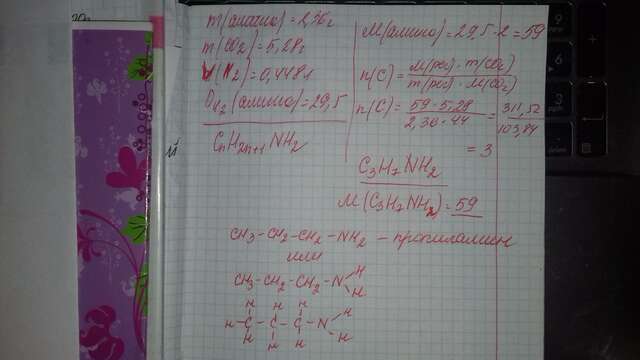 m(амино)=2,36г
m(CO2)=5,28г
V(N2)=0,448л
DH2(амино)=29,5
CnH2n+1NH2
M(амино)=29,5·2=59
n(C)= M(рег)·m(CO2) / m(рег)·M(CO2)
n(C)= 59·5,28 / 2,36·44 = 311,52 / 103,84
= 3
C3H7NH2
M(C3H7NH2)=59
CH3-CH2-CH2-NH2 - пропиламин
или
CH3-CH2-CH2-N H
H
H H H
H-C-C-C-N H
H H H H